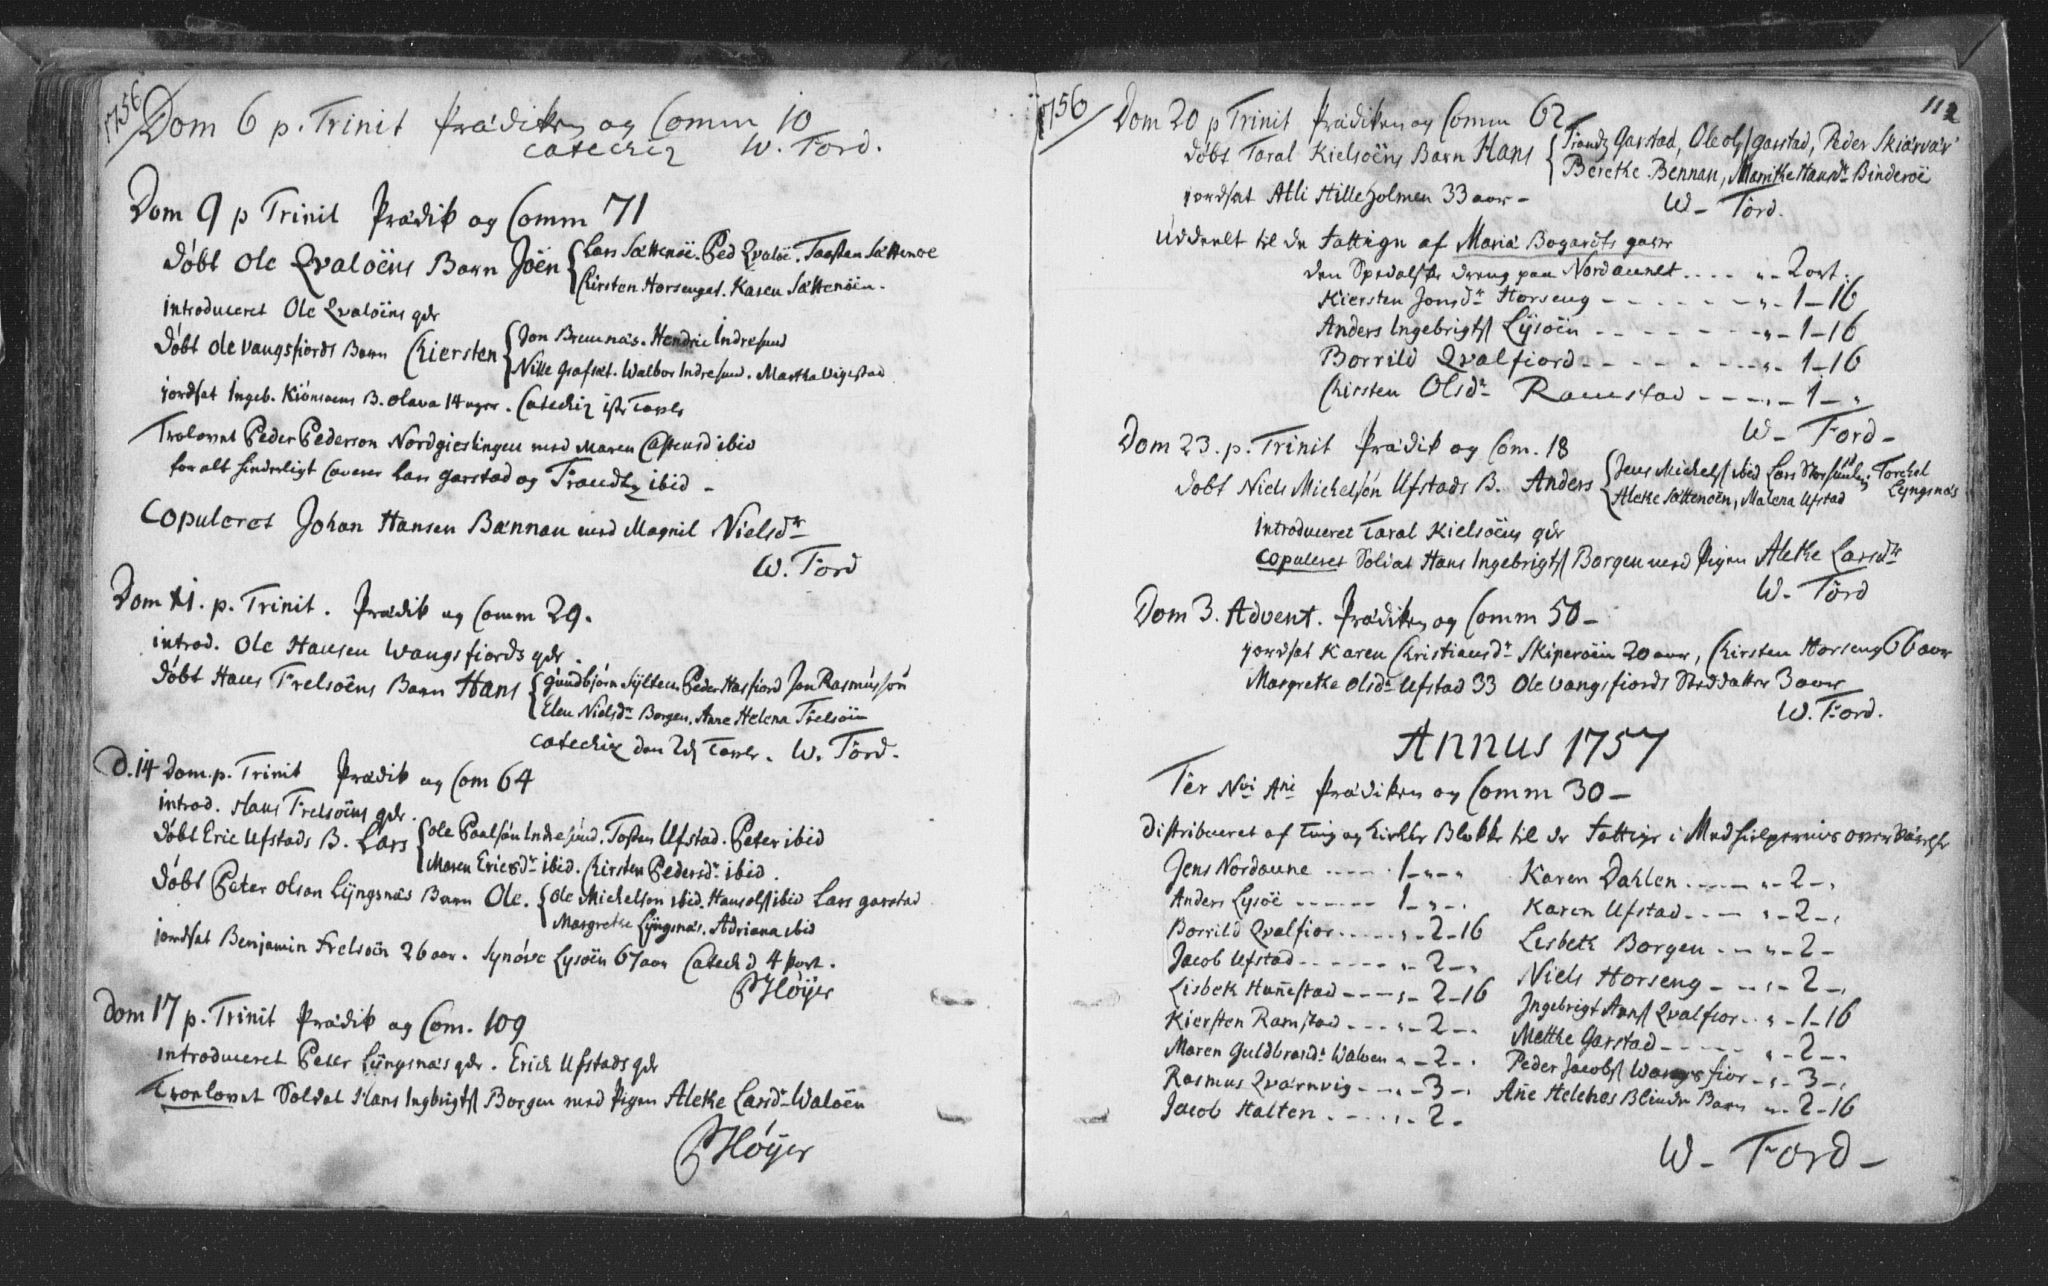 1756
Dom 6 p. Trinit Prædiken og Comm 10
catechiz W. Tord.
Dom 9 p Trinit Prædik og Comm 71
døbt Ole Qvaløens Barn Joën { Lars Sættenöe. Ped Qvalöe. Tosten Sættenöe
Chirsten Horsenget. Karen Sættenöen.
introduceret Ole Qvalöens qdr
døbt Ole Vangsfiords Barn Chiersten { Jon Bremnæs. Hendric Indresund
Nille Grafset. Walbor Indresund. Martha Vigestad
jordsat Ingeb. B. Olava 14 uger. Catechiz
Trolovet Peder Pederson Nordgieslingen med Maren ibid
for alt hinderligt Caverer Lars Garstad og Trondtz ibid -
Copuleret Johan Hansen Bænnau med Magnil Nielsdr
W. Tord
Dom XI. p. Trinit. Prædik og Comm 29.
introd. Ole Hansen Wangsfiords qdr.
døbt Hans Frelsöens Barn Hans { Gundbjørn Sÿlten Peder Hasfiord Jon Rasmussøn
Elen Nielsdr Borgen. Anne Helena Frelsöen
catechiz den W. Tord.
D. 14 dom. p. Trinit Prædik og Com 64
introd. Hans Frelsöens qdr.
døbt Eric Ufstads B. Lars { Ole Paalsøn Indresund. Tosten Ufstad. Peter ibid
Maren Ericsdr ibid. Chirsten Pedersdr ibid.
døbt Peter Olson Lÿngsnæs Barn Ole. { Ole Michelson ibid. Hans Ols ibid Lars Garstad
Margrethe Lÿngsnæs. Adriana ibid
jordsat Benjamin Frelsöen 26 aar. Synøve Lysöen 67 aar Catech d 4 Part.
Høÿer
Dom 17 p. Trinit Prædik og Com. 109
introduceret Peter Lÿngsnæs qdr. Erich Ufstads qdr
Troelovet Soldat Hans Ingbrigts Borgen med Pigen Aleke Larsdr Waløen
Høÿer
1756
112
Dom 20 p Trinit Prædiken og Comm 62
døbt Taral Kielsöens Barn Hans { Trondz Garstad, Ole Ols Garstad, Peder Skiærvær
Berethe Bennau, Marrithe Hansdr Binderöe
jordsat Atli Hilleholmen 33 aar -
W - Tord.
Uddeelt til de Fattige af Maria Bogardts gave
den Spedalske dreng paa Nordaunet .... " - 2 ort.
Kiersten Jonsdr Horseng - - - - " - 1 - 16
Anders Ingebrigts Lÿsöen - - - - " - 1 - 16
Borrild Qvalfiord - - - - " - 1 - 16
Chirsten Olsdr Ramstad - - - " - 1 - "
W - Tord -
Dom 23. p. Trinit Prædik og Com. 18
døbt Niels Michelsøn Ufstads B. Anders { Jens Michels ibid Lars Torchel
Aleke Sættenöen, Malena Ufstad Lÿngsnæs
introduceret Taral Kielsöens qdr
Copuleret Soldat Hans Ingebrigts Borgen med Pigen Aleke Larsdr
W. Tord
Dom 3. Advent. Prædiken og Comm 50 -
jordsat Karen Christiansdr Skiperöen 20 aar, Chirsten Horseng 66 aar
Margrethe Olsdr Ufstad 33 Ole Vangsfiords Steddatter 3 aar
W. Tord.
Annus 1757
Fer Nvi Ani Prædiken og Comm 30 -
distribueret af Ting og Kirke Blokke til de Fattige i Medhielpernes overværelse
Jens Nordaune ---- 1 - " - "
Anders Lysöe ------ 1 - " - .
Borrild Qvalfior ----- " - 2 - 16
Jacob Ufstad ------ " - 2 - "
Lisbek Hunnestad ---- " - 2 - 16
Kiersten Ramstad ---- " - 2 - "
Maren Guldbrandr Waloen " - 2 - "
Rasmus Qværnvig ---- " - 3 - "
Jacob Halten ----- " - 2 -
Karen Dahlen ---- " - 2 - "
Karen Ufstad ---- " - 2 - "
Lisbeth Borgen --- " - 2 -
Niels Horseng --- " - 2 - "
Ingebrigt Hans Qvalfior .. " - 1 - 16
Mette Garstad ----- " - 2 - "
Peder Jacobs Wangsfior - " - 3 - "
Añe Helenes Blinde Barn " - 2 - 16
W - Tord -